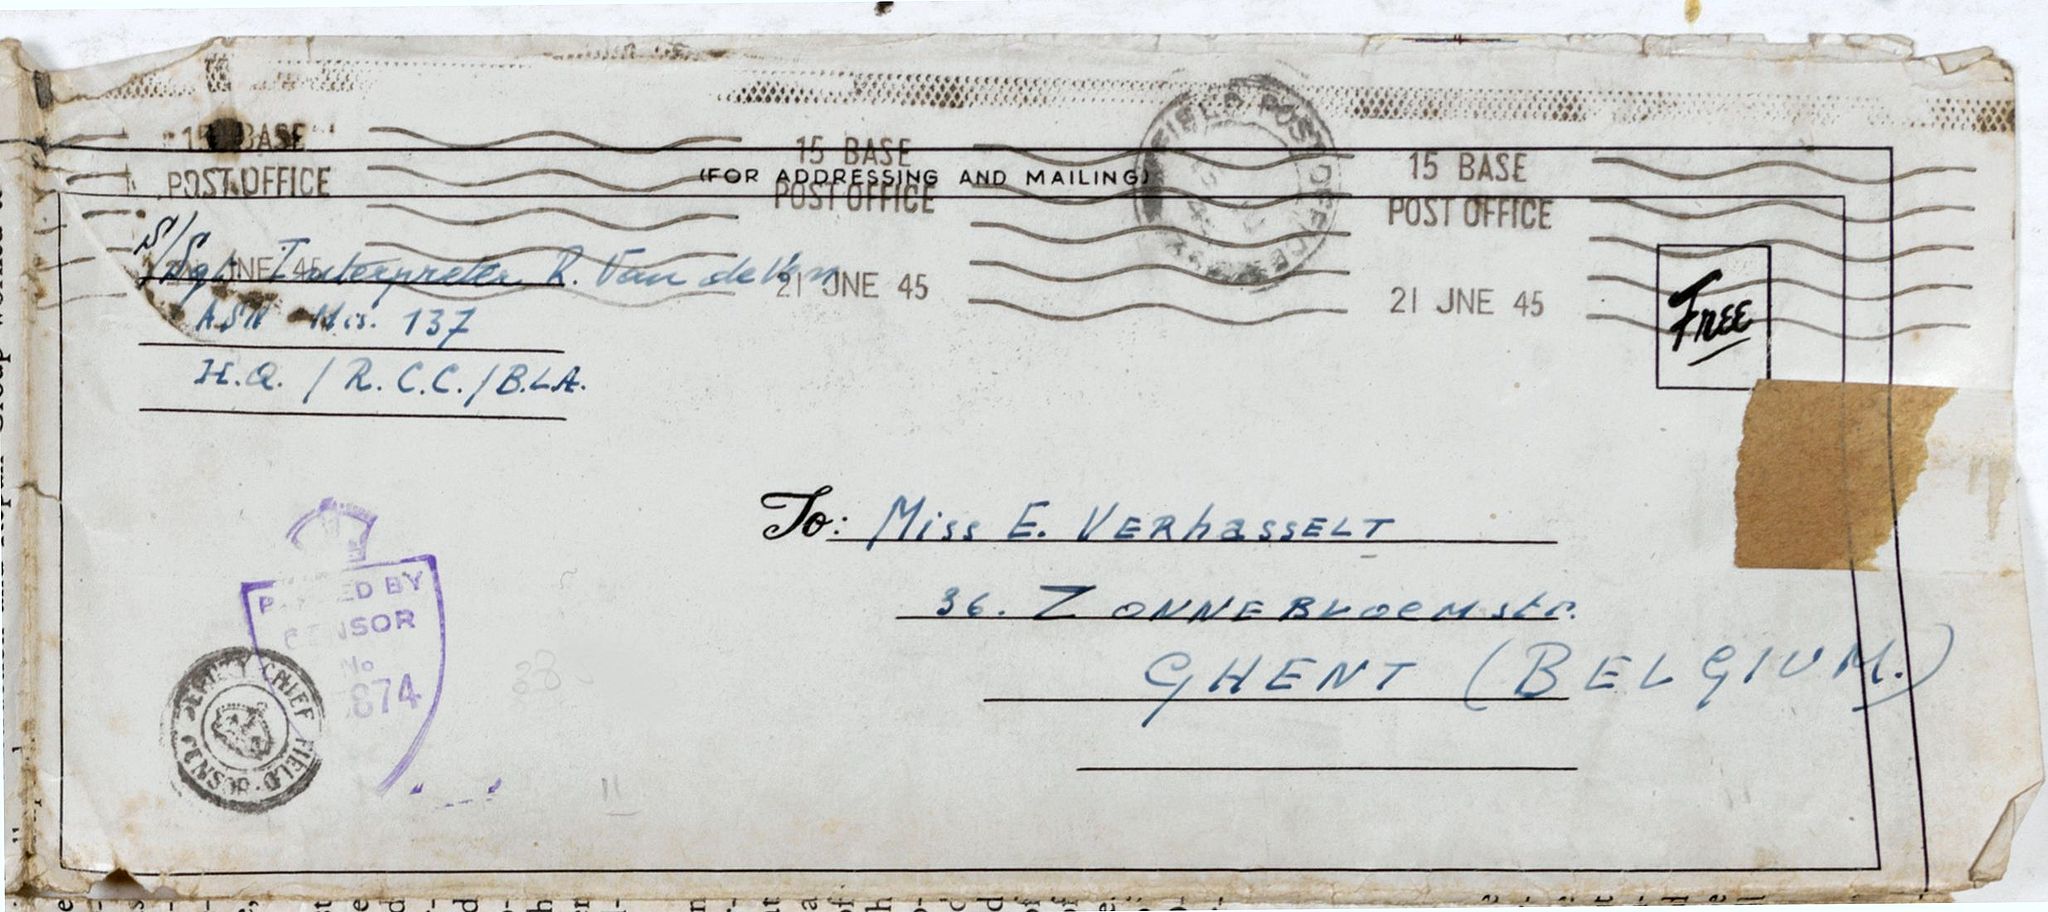 15 BASE
POST OFFICE
15 BASE
POST OFFICE
21 JNE 45
15 BASE
POST OFFICE
21 JNE 45
FIELD POST OFFICE
(FOR ADDRESSING AND MAILING)
S/Sgt. Interpreter R. Van de Ven
JNE 45
137
H.Q. / R.C.C. / B.L.A.
Free
To: Miss E. VERhaSSELT
36. ZONNEBLOEMstr.
GHENT (BELGIUM.)
PASSED BY
CENSOR
No
874
DEPUTY CHIEF FIELD CENSOR